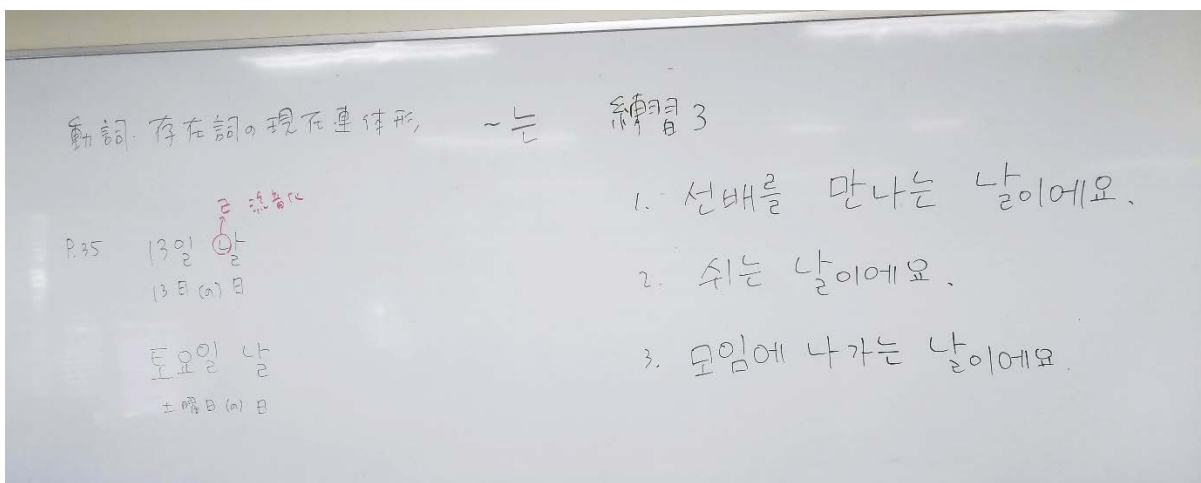 動詞・存在詞の現在連体形 ~는
ㄹ 流音化
P.35 13일 날
13日(の)日
토요일 날
土曜日(の)日
練習3
1. 선배를 만나는 날이에요.
2. 쉬는 날이에요.
3. 모임에 나가는 날이에요.